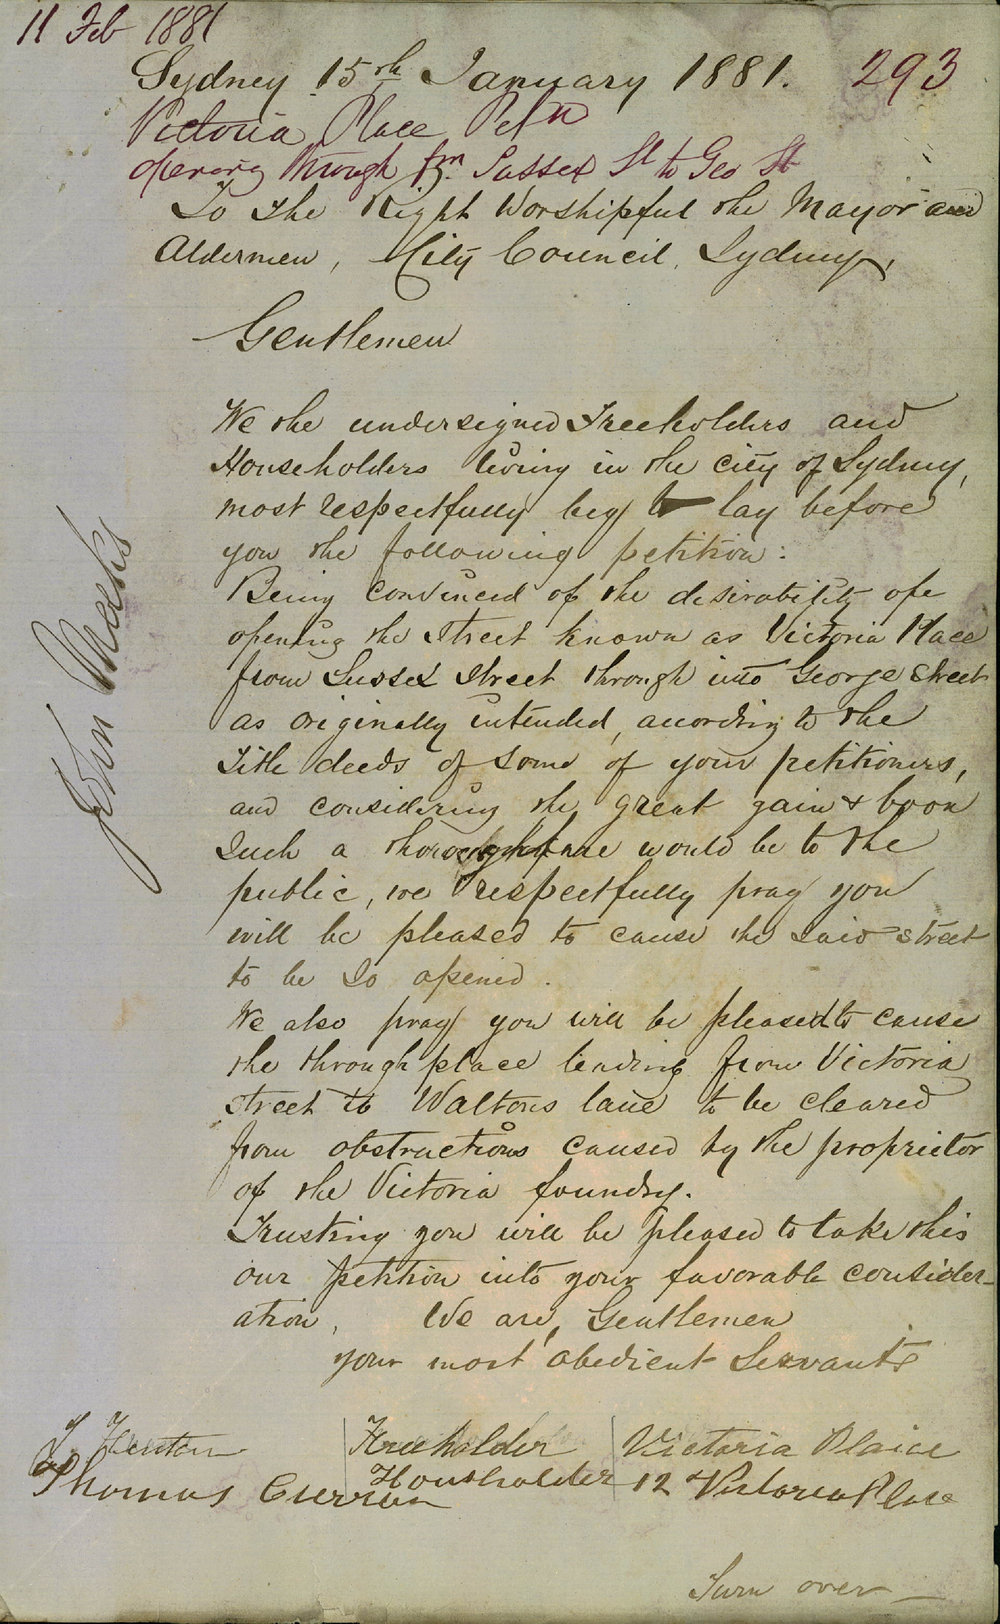 11 Feb 1881
Sydney 15th January 1881. 293
Victoria Place Petn
opening through fm Sussex St to Geo St
To the Right Worshipful the Mayor and
Aldermen, City Council, Sydney,
Gentlemen
We the undersigned Freeholders and
Householders living in the city of Sydney,
most respectfully beg to lay before
you the following petition:
Being convinced of the desirability of
opening the street known as Victoria Place
from Sussex Street through into George Street
as originally intended, according to the
Title deeds of some of your petitioners,
and considering the great gain & boon
Such a thoroughfare would be to the
public, we respectfully pray you
will be pleased to cause the said street
to be so opened.
We also pray you will be pleased to cause
the through place leading from Victoria
street to Waltons lane to be cleared
from obstructions caused by the proprietor
of the Victoria foundry.
Trusting you will be pleased to take this
our petition into your favorable consider-
ation, We are, Gentlemen
your most obedient Servants
Freeholder Victoria Plaice
Thomas Curran Housholder 12 Victoria Place
Turn over
John Meeks